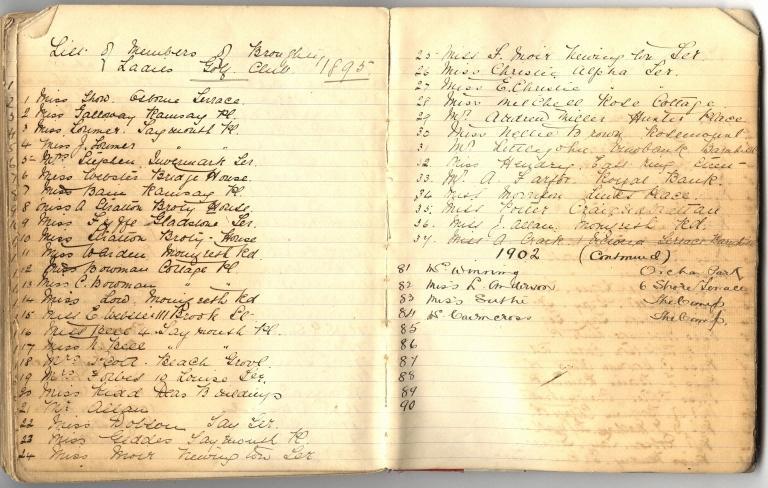 List of Members of Broughty
Ladies Golf Club 1895
1 Miss Thow. Osborne Terrace
2 Miss Galloway Ramsay Pl.
3 Miss Lorimer. Taymouth Pl.
4 Miss J. Lorimer " "
5 Mrs Stephen Invermark Ter.
6 Miss Webster Bridge House
7 Miss Bain Ramsay Pl
8 Miss A Stratton Broty House
9 Miss Fyffe Gladstone Ter.
10 Miss Stratton Broty-House
11 Miss Warden Monifieth Rd
12 Miss Bowman Cottage Pl
13 Miss C. Bowman " "
14 Miss Low. Monifieth Rd
15 Miss E Webster 111 Brook St
16 Miss Peel 4 Taymouth Pl.
17 Miss Peel " "
18 Mrs Scott. Beach Grove.
19 Mrs Forbes 10 Louise Ter.
20 Miss Kidd Buildings
21 Mr Allan
22 Miss Dobson Tay Ter.
23 Miss Geddes Taymouth Pl.
24 Miss Moir Newington Ter
25 Miss F. Moir Newington Ter.
26 Miss Christie Alpha Ter.
27 Miss E. Christie " "
28 Miss Mitchell Rose Cottage
29 Mr Andrew Miller Hunter Place
30 Miss Nellie Brown Rosemount
31 Mr Littlejohn. Barnhill
32. Miss Hendry
33. Mr. A. Royal Bank.
34 Miss Morrison Links Place
35. Miss Porter
36. Miss J. Allan Monifieth Rd.
37. Miss A Terrace
1902 (Continued)
81 Mr Winning Orchar Park
82 Miss L. Anderson 6 Shore Terrace
83 Miss The Camp
84 Mr Cairncross The Camp
85
86
87
88
89
90